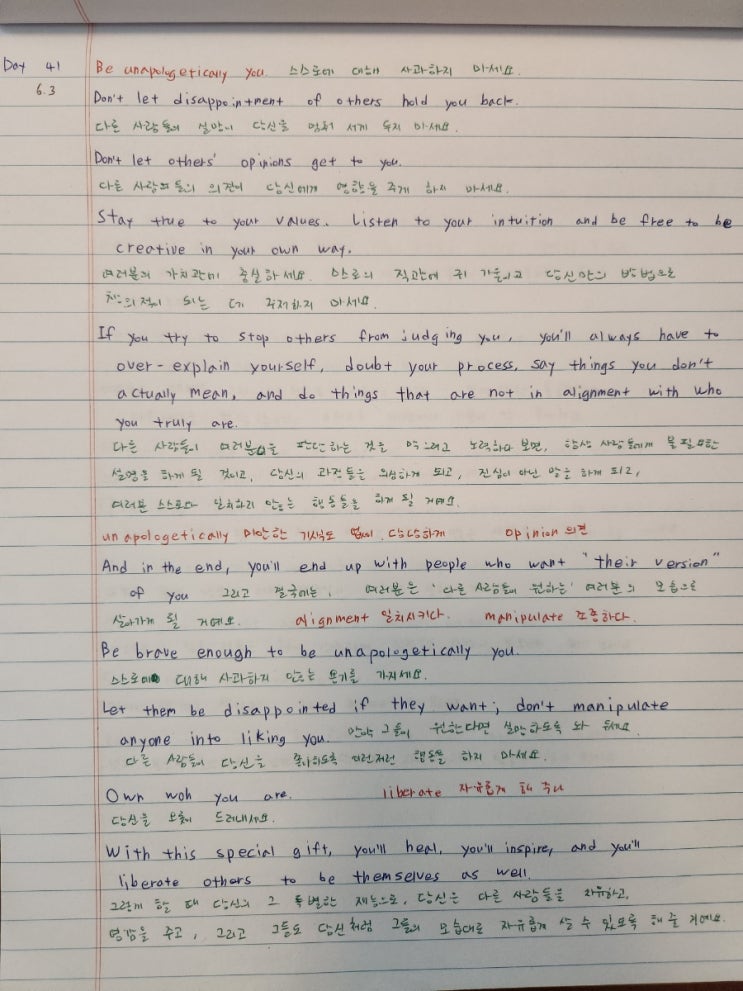 Day 41 Be unapologetically you. 스스로에 대해 사과하지 마세요.
6.3
Don't let disappointment of others hold you back.
다른 사람들의 실망이 당신을 멈춰 서게 두지 마세요.
Don't let others' opinions get to you.
다른 사람의들의 의견이 당신에게 영향을 주게 하지 마세요.
Stay true to your values. Listen to your intuition and be free to be
creative in your own way.
여러분의 가치관에 충실하세요. 스스로의 직관에 귀 기울이고 당신만의 방법으로
창의적이 되는 데 주저하지 마세요.
If you try to stop others from judging you, you'll always have to
over-explain yourself, doubt your process, say things you don't
actually mean, and do things that are not in alignment with who
you truly are.
다른 사람들이 여러분을 판단하는 것을 막으려고 노력하다 보면, 항상 사람들에게 불필요한
설명을 하게 될 것이고, 당신의 과정들을 의심하게 되고, 진심이 아닌 말을 하게 되고,
여러분 스스로와 일치하지 않는 행동들을 하게 될 거예요.
unapologetically 미안한 기색도 없이, 당당하게 opinion 의견
And in the end, you'll end up with people who want "their version"
of you 그리고 결국에는, 여러분은 '다른 사람들이 원하는' 여러분의 모습으로
살아가게 될 거예요. alignment 일치시키다. manipulate 조종하다.
Be brave enough to be unapologetically you.
스스로에 대해 사과하지 않는 용기를 가지세요.
Let them be disappointed if they want; don't manipulate
anyone into liking you. 만약 그들이 원한다면 실망하도록 놔 두세요.
다른 사람들이 당신을 좋아하도록 이런저런 행동을 하지 마세요.
Own woh you are. liberate 자유롭게 해 주다
당신을 오롯이 드러내세요.
With this special gift, you'll heal, you'll inspire, and you'll
liberate others to be themselves as well.
그렇게 할 때 당신의 그 특별한 재능으로, 당신은 다른 사람들을 치유하고,
영감을 주고, 그리고 그들도 당신처럼 그들의 모습대로 자유롭게 살 수 있도록 해 줄 거예요.